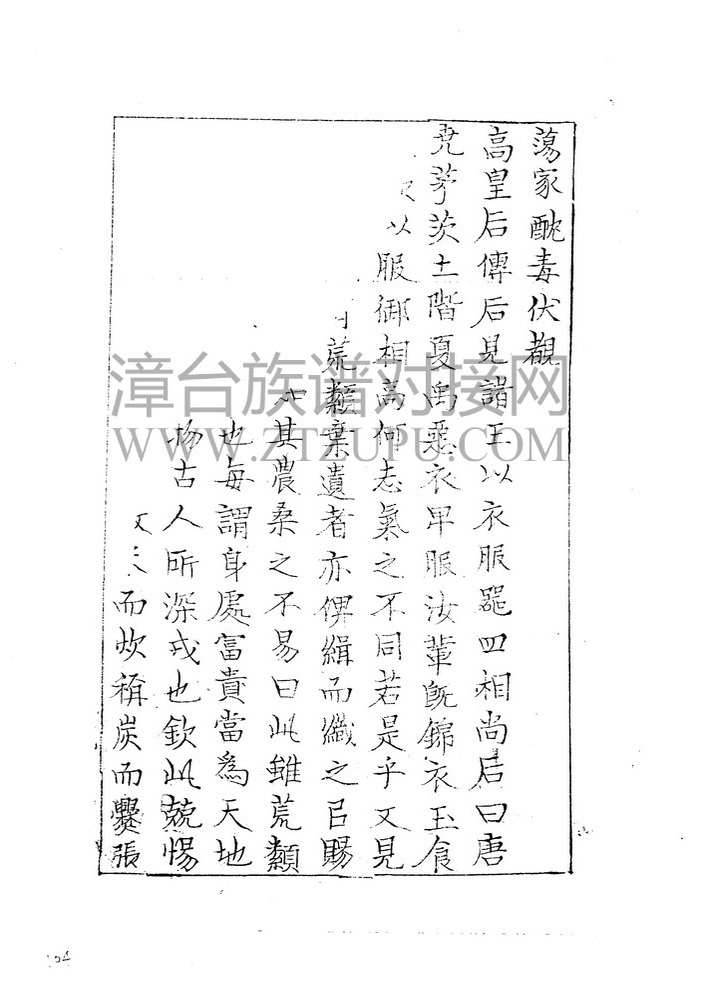 蕩家酖毒伏觀
高皇后傳后見諸王以衣服器四相尚后曰唐
堯茅茨土階夏禹惡衣卑服汝輩既錦衣玉食
以服御相高何志氣之不同若是乎又見
荒纇棄遺者亦俾緝而織之召賜
其農桑之不易曰此雖荒纇
也每謂身處富貴當為天地
物古人所深戒也欽此兢惕
而炊稱炭而爨張
漳台族谱对接网
WWW.ZTZUPU.COM
104